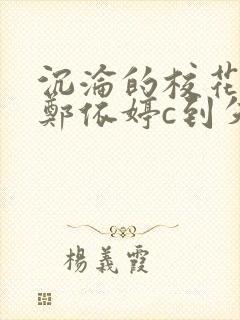 沉淪的校花
鄭依婷c到
楊義霞